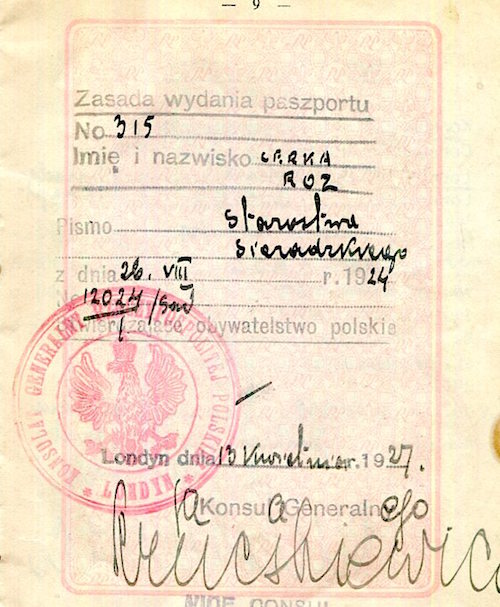 — 9 —
Zasada wydania paszportu
No 315
Imię i nazwisko CERKA
ROZ
Pismo Starostwa
Sieradzkiego
z dnia 26. VIII r. 1924
12024/
obywatelstwo polskie
KONSULAT GENERALNY RZECZYPOSPOLITEJ POLSKIEJ
* LONDYN *
Londyn dnia 13 Kwietnia r. 1927.
za Konsula Generalnego
VICE CONSUL